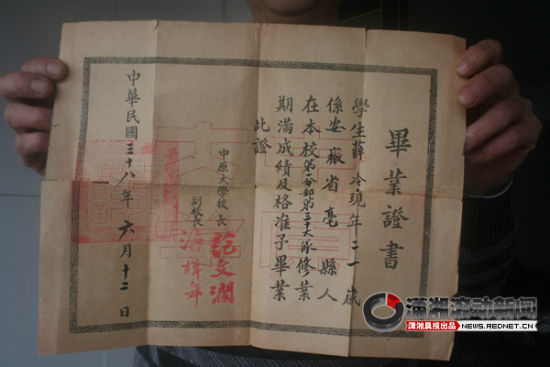 畢業證書
學生薛冷現年二一歲
係安徽省亳縣人
在本校第一分部第三十大隊修業
期滿成績及格准予畢業
此證
中原大學校長 范文瀾
副校長 潘梓年
中華民國三十八年六月十二日
潇湘滚动新闻
潇湘晨报出品 NEWS.REDNET.CN